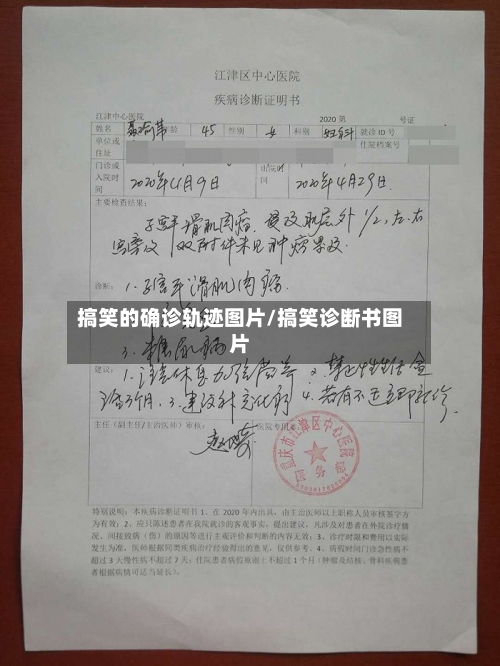 江津区中心医院
疾病诊断证明书
江津中心医院 2020 第 号证
姓名 年龄 45 性别 女 科别 妇科 就诊 ID 号
单位或住址 住院档案号
门诊或入院时间 2020年4月9日 出院时间 2020年4月29日
主要检查结果:
子宫平滑肌肉瘤,侵及肌层外1/2,左、右
宫旁及双附件未见肿瘤累及.
诊断: 1.子宫平滑肌肉瘤
搞笑的确诊轨迹图片/搞笑诊断书图
片
3.糖尿病
建议: 1.注意休息加强营养 2.禁止性生活盆
浴3个月. 3.建议补充化疗 4.若有不适立即就诊.
主任(副主任/主治医师)审核: 医院专用章:
重庆市江津区中心医院
特别说明:本疾病诊断证明书 1、在 2020 年内出具,由主治医师以上职称人员审核签字方
为有效;2、应只陈述患者在我院就诊的客观事实,提出建议,凡涉及对患者在外院诊疗情
况、间接致病(伤)的原因等进行主观评价和判断的内容无效;3、诊疗时温和费用以实际
发生为准,医师根据同类疾病治疗经验得出的意见,仅供参考。4、病假时间门诊急性病不
超过 3 天慢性病不超过 7 天;住院患者病假原则上不超过 1 个月(肿瘤及结核、骨科疾病患
者根据病情可适当延长)。